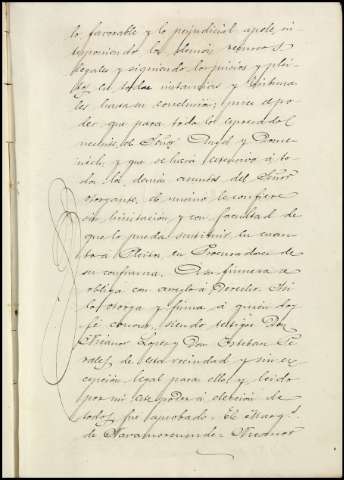 lo favorable y lo perjudicial apele, in
terponiendo los demás recursos
legales y siguiendo los juicios y plei
tos en todas instancias y tribuna
les hasta su conclusión; pues apo
der que para todo lo expresado
necesite, el Señor Angel y Dome
nech, y que se hará extensivo á to
dos los demás asuntos del Señor
otorgante, el mismo le confiere
sin limitación y con facultad de
que lo pueda sustituir en cuan
to a Pleitos, en Procuradores de
su confianza. A su firmeza se
obliga con arreglo á Derecho. Así
lo otorga y firma á quien doy
fé conozco, siendo testigos Don
Nicanor Lopez y Don Esteban
de esta vecindad y sin ex
cepción legal para ello, y leido
por mi este poder á elección de
todos, fué aprobado. El Marq.s
de Navamorcuende. Nicanor